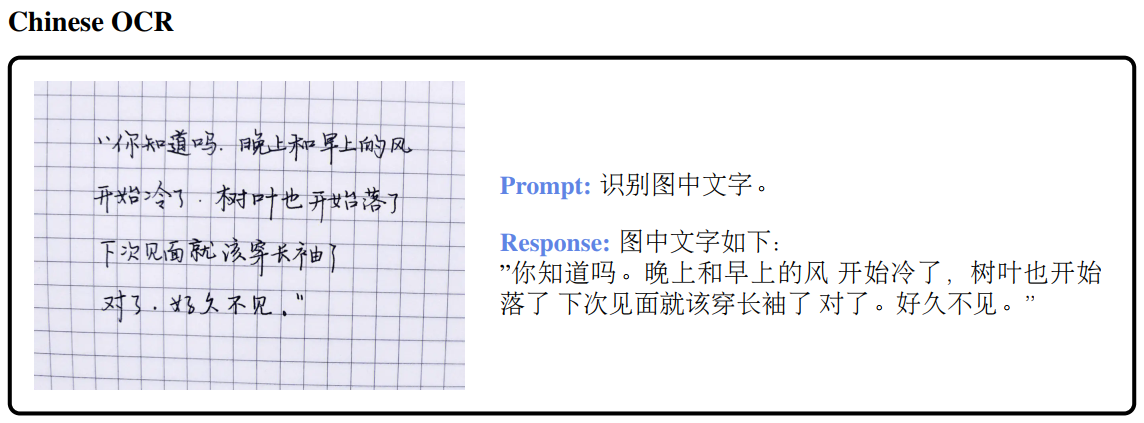 Chinese OCR
“你知道吗. 晚上和早上的风
开始冷了. 树叶也开始落了
下次见面就该穿长袖了
对了. 好久不见。”
Prompt: 识别图中文字。
Response: 图中文字如下：
”你知道吗。晚上和早上的风 开始冷了，树叶也开始
落了 下次见面就该穿长袖了 对了。好久不见。”